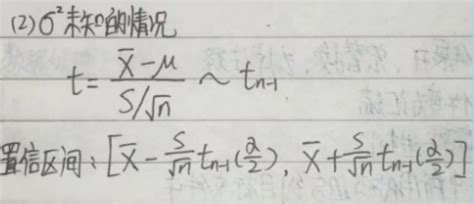 (2) σ² 未知的情况
t = (X̄ - μ) / (S/√n) ~ t_{n-1}
置信区间: [X̄ - S/√n t_{n-1}(α/2), X̄ + S/√n t_{n-1}(α/2)]